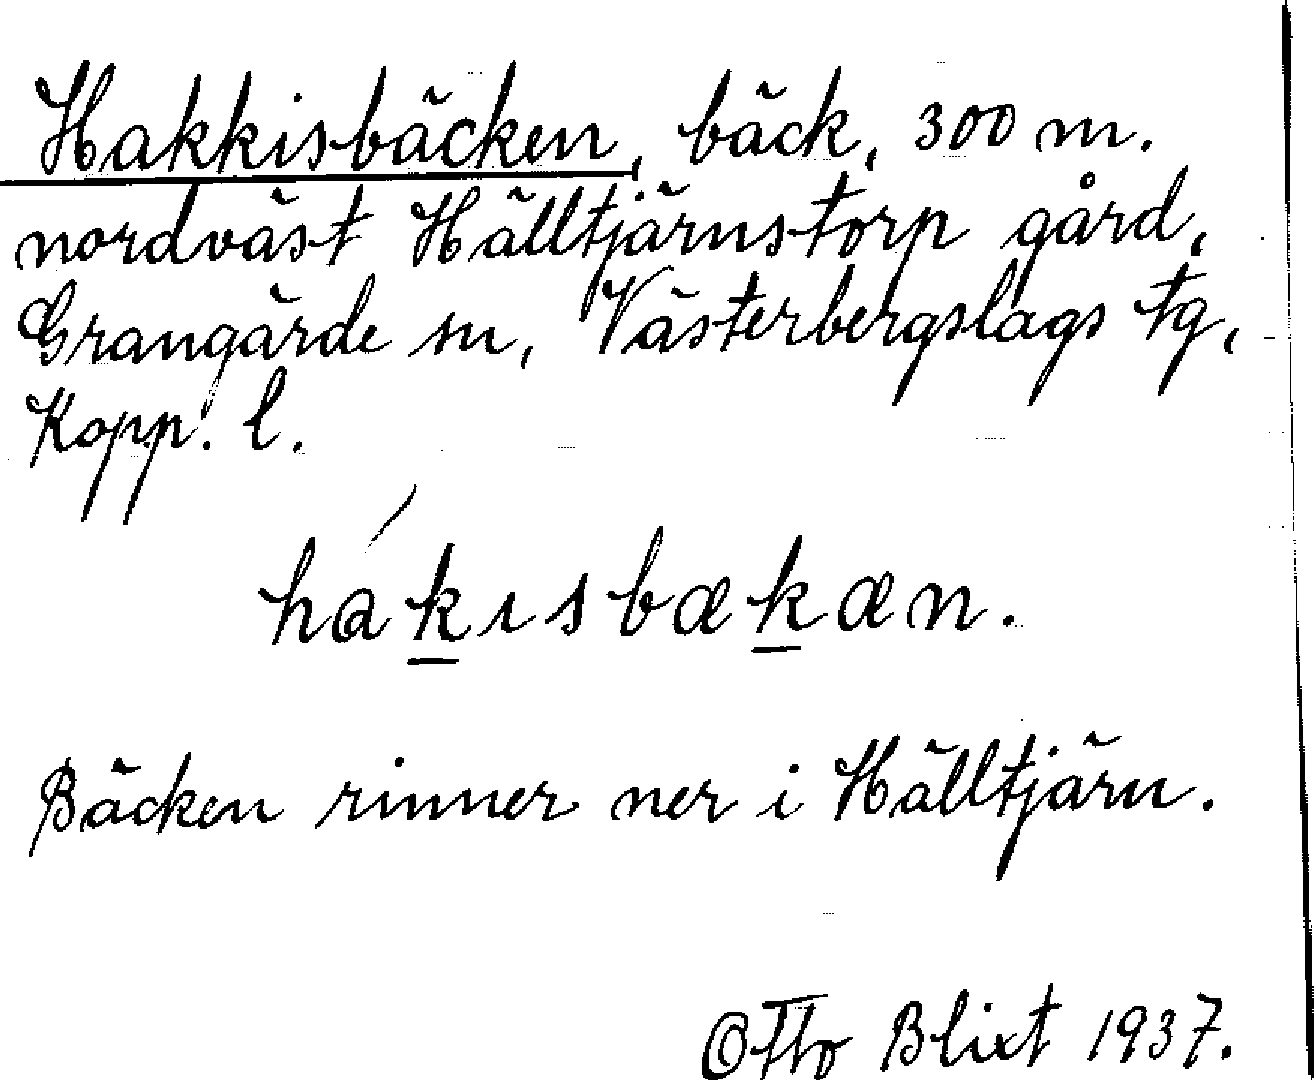 Hakkisbäcken, bäck, 300 m.
nordväst Hälltjärnstorp gård,
Grangärde sn, Västerbergslags tg,
Kopp. l.
hákısbækæn.
Bäcken rinner ner i Hälltjärn.
Otto Blixt 1937.